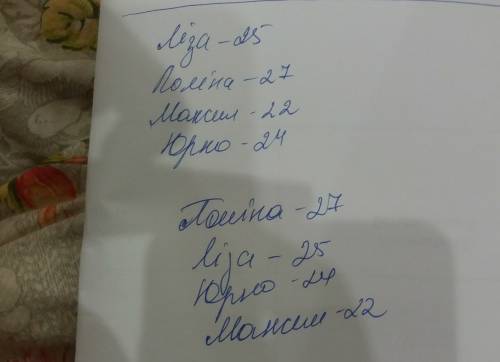 Ліза - 25
Поліна - 27
Максим - 22
Юрко - 24
Поліна - 27
Ліза - 25
Юрко - 24
Максим - 22